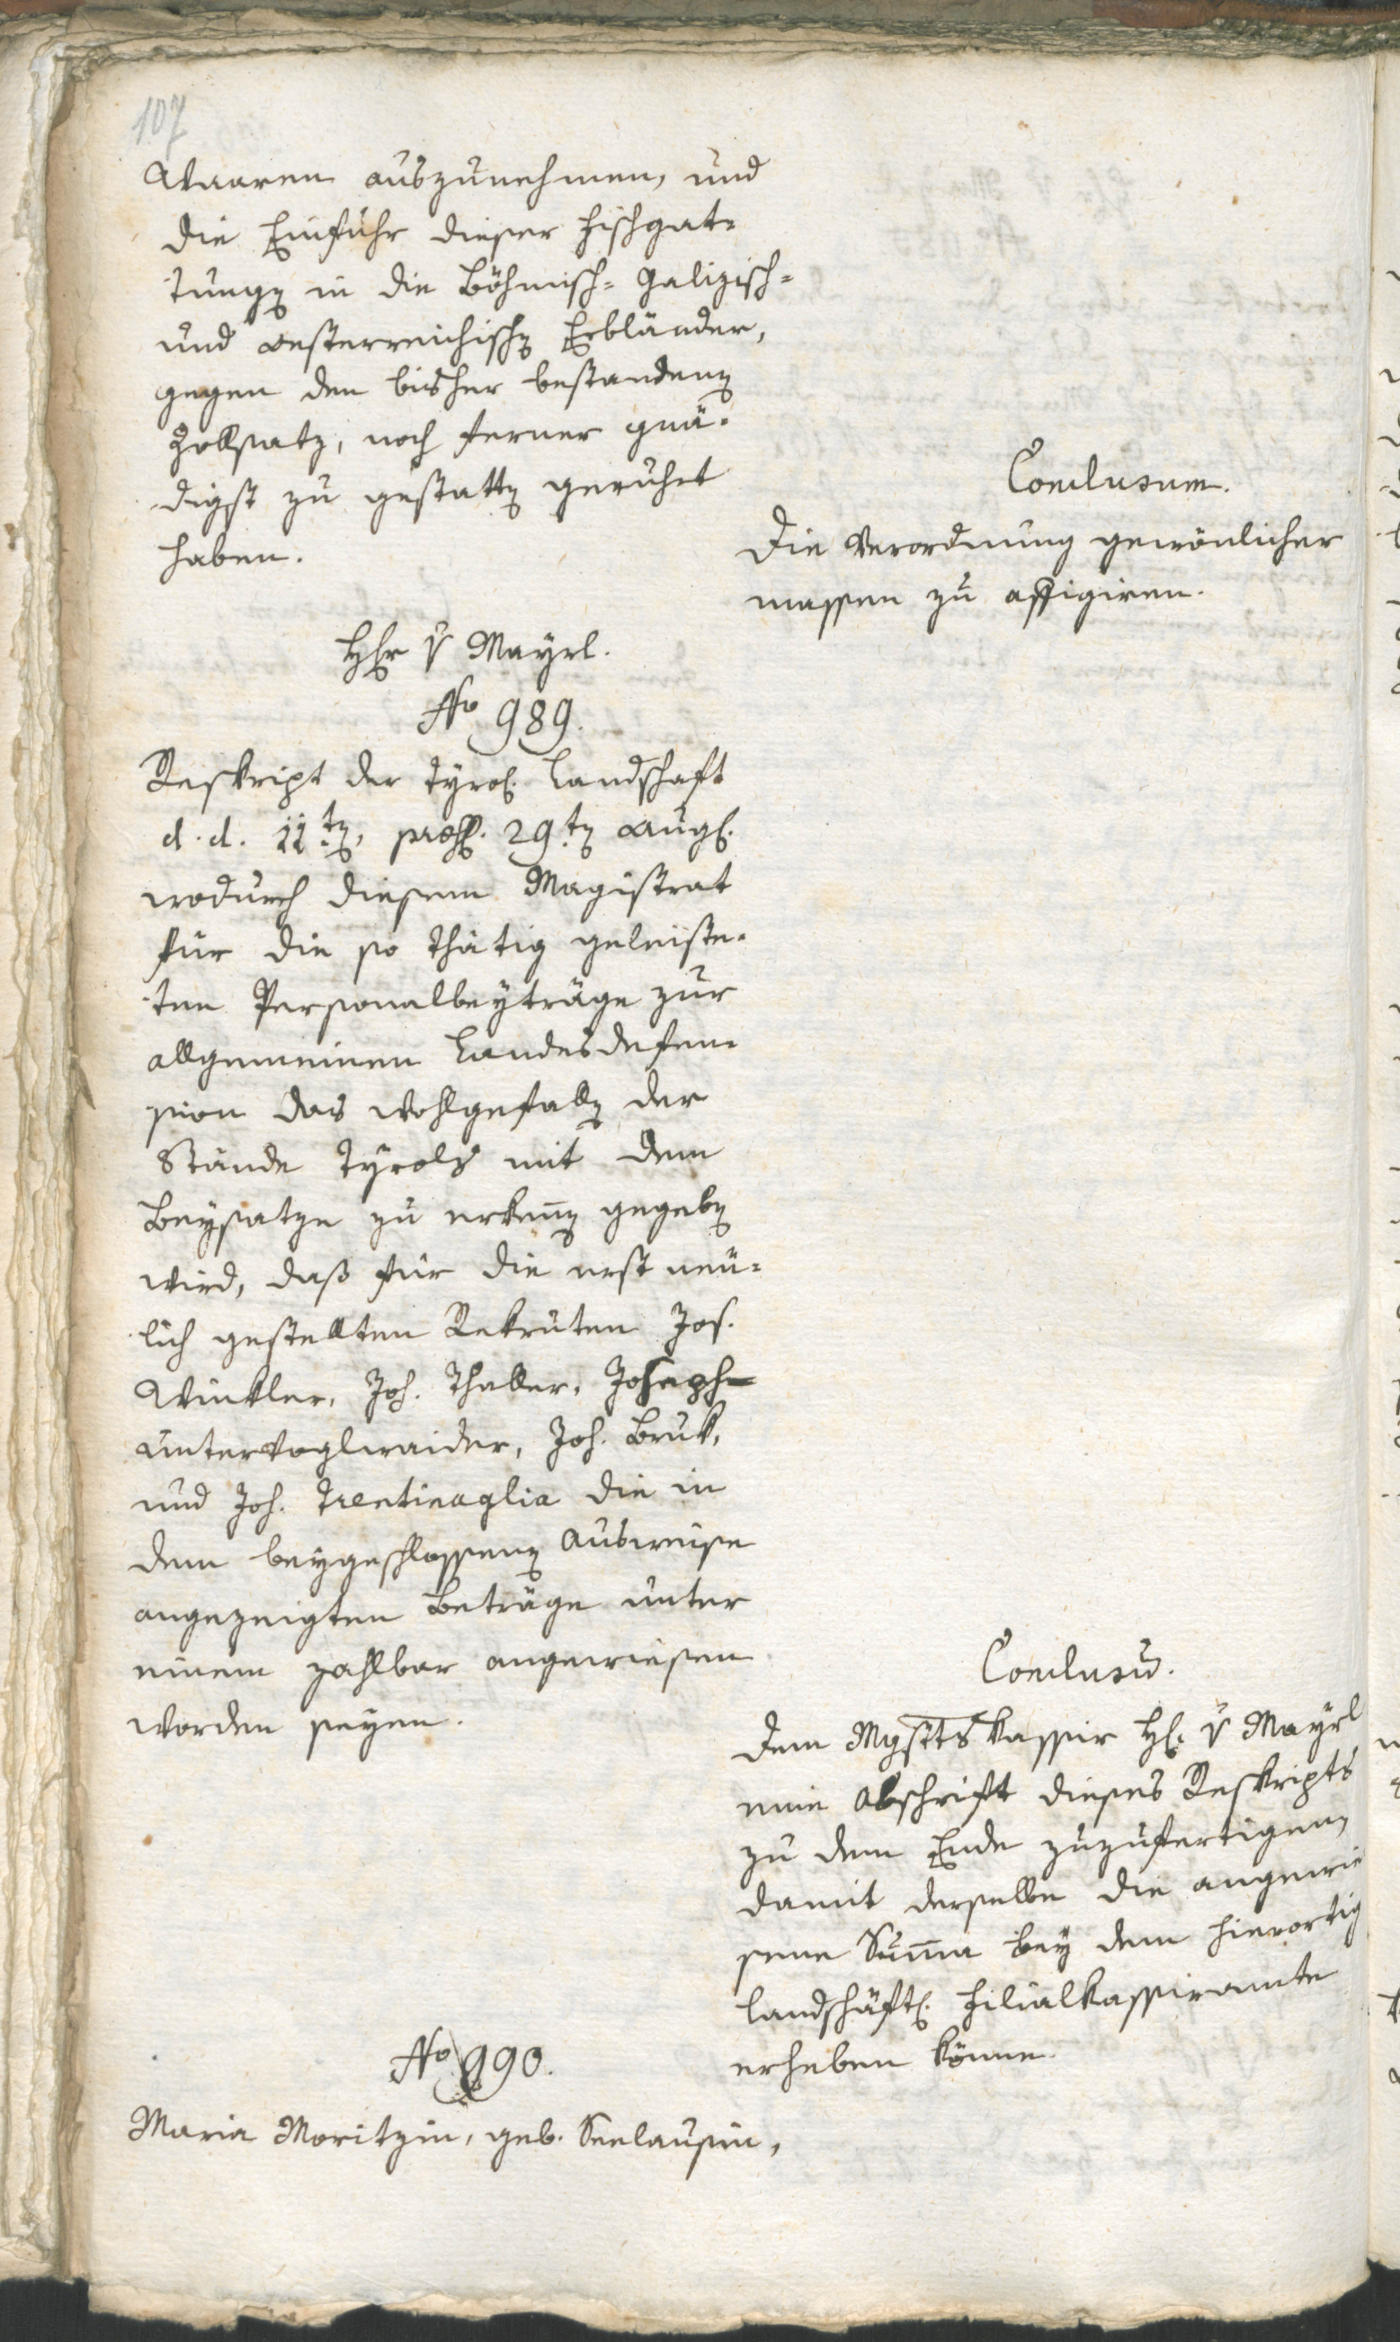 107
Waaren auszunehmen, und
die Einfuhr dieser Fischgat-
tungen in die Böhmisch- Galizisch-
und oesterreichischen Erbländer,
gegen den bisher bestandenen
Zollsatz, noch ferner gnä-
digst zu gestatten geruhet
haben.
Conclusum.
Die Verordnung gewönlicher
massen zu affigiren.
Hr v Mayrl.
No 989.
Reskript der Tyrol. Landschaft
d. d. 11ten, präs. 29ten Aug.
wodurch diesem Magistrat
für die so thätig geleiste-
ten Personalbeyträge zur
allgemeinen Landesdefen-
sion das Wohlgefallen der
Stände Tyrols mit dem
Beysatze zu erkennen gegeben
wird, daß für die erst neu-
lich gestellten Rekruten Jos.
Winkler, Joh. Thaller, Joseph
Untervoglwaider, Joh. Bruk,
und Joh. Trentinaglia die in
dem beygeschlossenen Ausweise
angezeigten Beträge unter
einem zahlbar angewiesen
worden seyen.
Conclusū.
Dem Mgstts Kassir H. v Mayrl
eine Abschrift dieses Reskripts
zu dem Ende zuzufertigen,
damit derselbe die angewie
sene Sum̅a bey dem hierortig
landschäftl. Filialkassiramte
erheben könne.
No 990.
Maria Moritzin, geb. Seelausin,